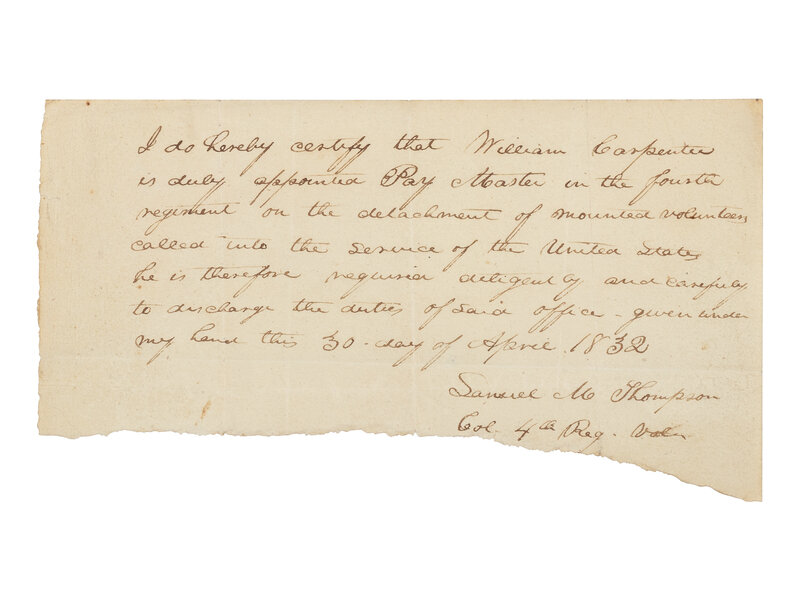 I do hereby certify that William Carpenter
is duly appointed Pay Master in the fourth
regiment on the detachment of mounted volunteers
called into the service of the United States
he is therefore requird diligently and carefully
to discharge the duties of said office - given under
my hand this 30 - day of April. 1832
Samuel M Thompson
Col. 4th Reg. Voln